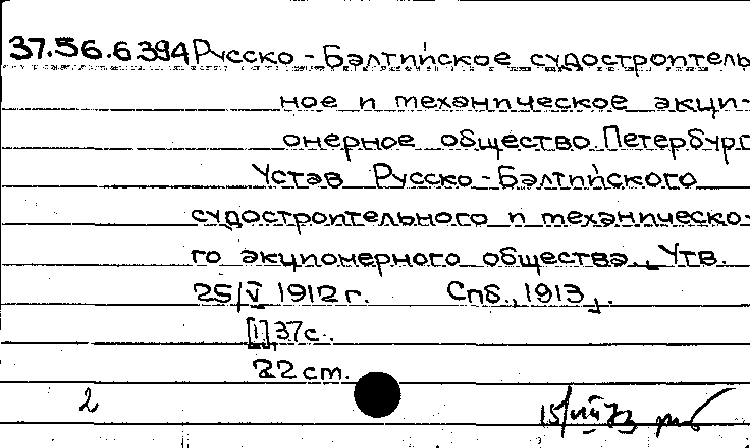 37.56.6394 Русско-Балтийское судостроитель
ное и механическое акци-
онерное общество. Петербург
Устав Русско-Балтийского
судостроительного и механическо-
го акционерного общества. Утв.
25/V 1912 г. Спб., 1913.
[1], 37 с.
22 cm.
2
15/VIII 73